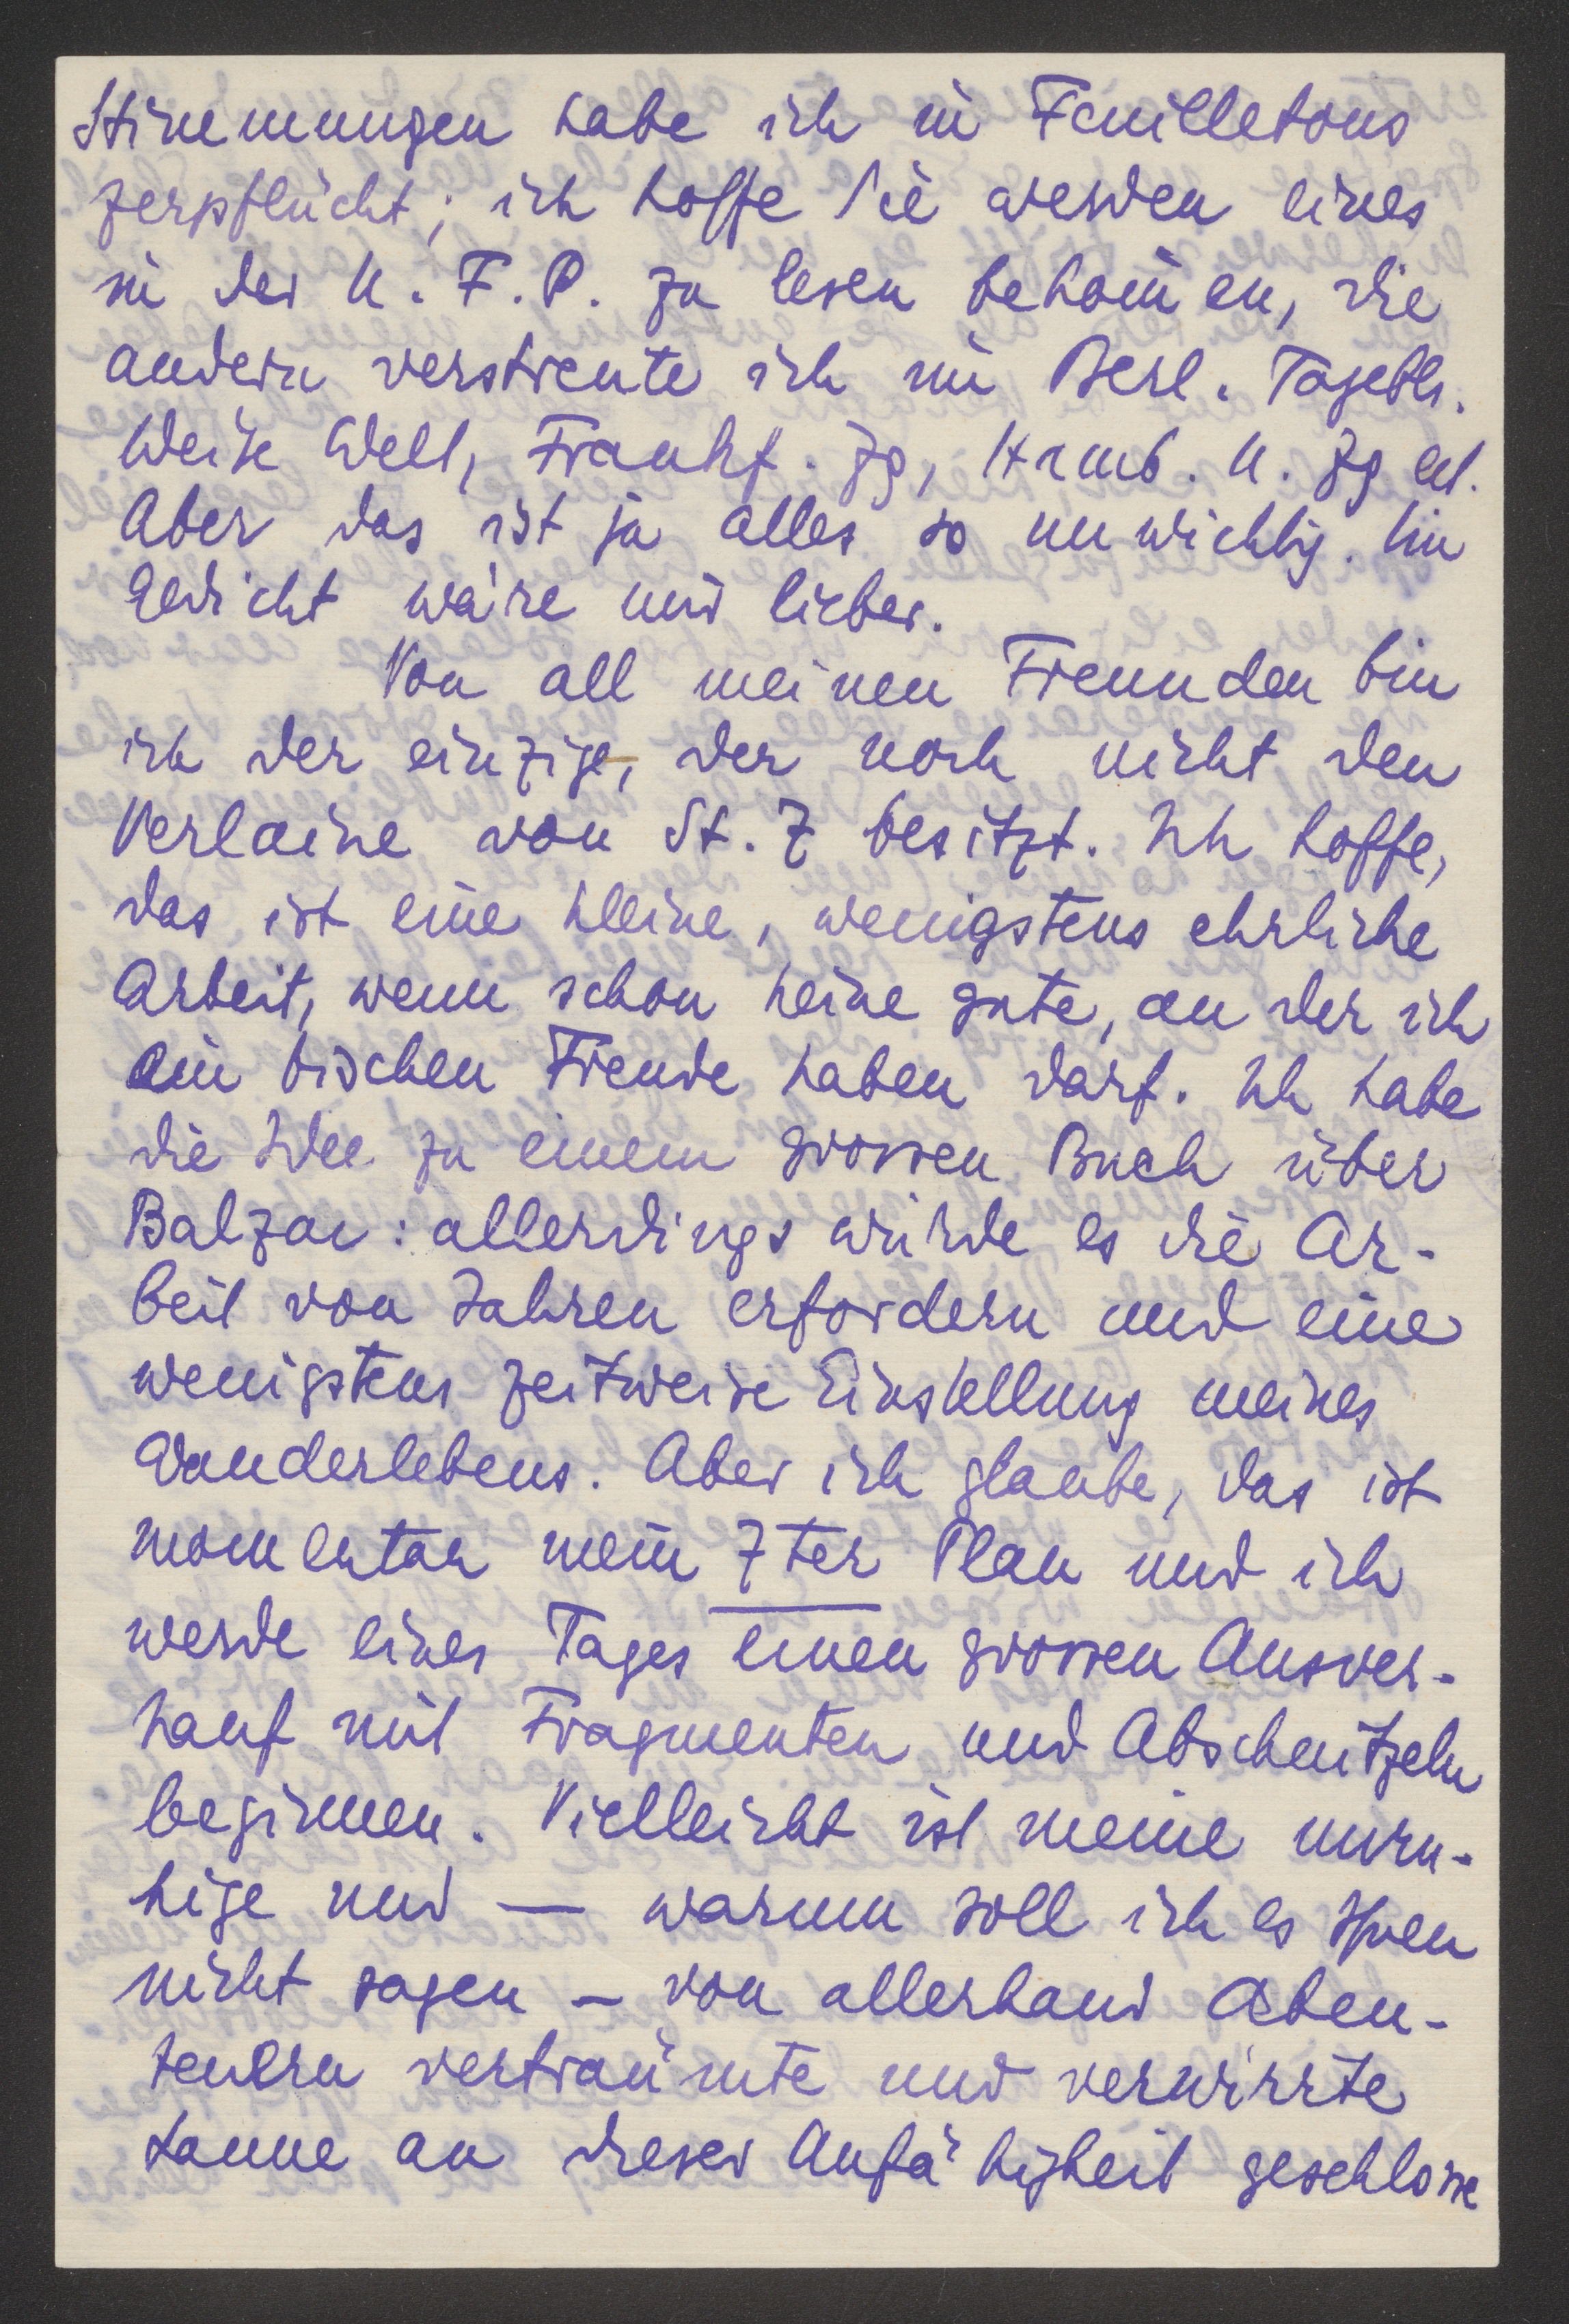 Stimmungen habe ich in Feuilletons
zerpflückt; ich hoffe Sie werden eines
in der N. F. P. zu lesen bekom̄en, die
andern verstreute ich im Berl. Tagebl.
Weite Welt, Frankf. Zg, Hamb. N. Zg ect.
Aber das ist ja alles so unwichtig. Ein
Gedicht wäre mir lieber.
Von all meinen Freunden bin
ich der einzige, der noch nicht den
Verlaine von St. Z besitzt. Ich hoffe,
das ist eine kleine, wenigstens ehrliche
Arbeit, wenn schon keine gute, an der ich
ein bischen Freude haben darf. Ich habe
die Idee zu einem grossen Buch über
Balzac: allerdings würde es die Ar-
beit von Jahren erfordern und eine
wenigstens zeitweise Einstellung meines
Wanderlebens. Aber ich glaube, das ist
momentan mein 7ter Plan und ich
werde eines Tages einen grossen Ausver-
kauf mit Fragmenten und Abschnitzeln
beginnen. Vielleicht ist meine unru-
hige und — warum soll ich es Ihnen
nicht sagen – von allerhand Aben-
teuern verträumte und verwirrte
Laune an dieser Unfähigkeit